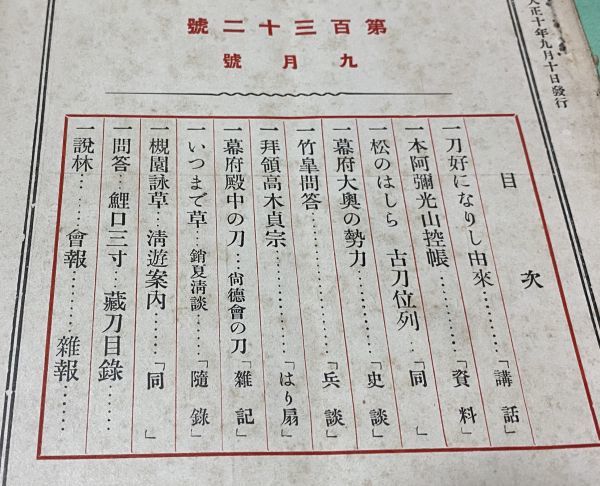 大正十年九月十日發行
第百三十二號
九月號
目次
一刀好になりし由來………「講話」
一本阿彌光山控帳…………「資料」
一松のはしら 古刀位列…「同」
一幕府大奧の勢力…………「史談」
一竹阜問答…………………「兵談」
一拜領高木貞宗……………「はり扇」
一幕府殿中の刀…尙德會の刀「雜記」
一いつまで草…銷夏淸談…「隨錄」
一槻園詠草…淸遊案内……「同」
一問答…鯉口三寸…藏刀目錄……
一說林……會報……雜報……